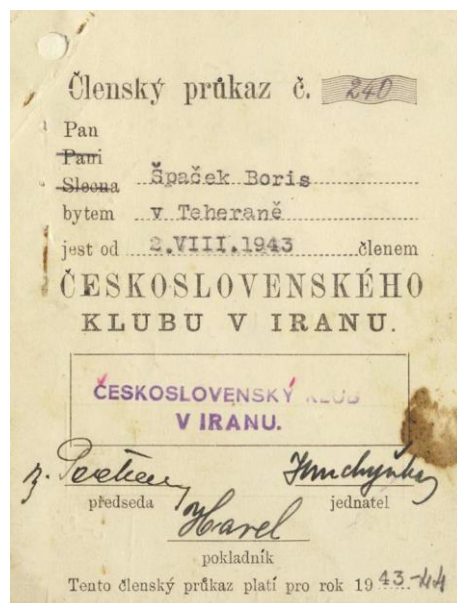 Členský průkaz č. 240
Pan
Paní
Slečna Špaček Boris
bytem v Teheraně
jest od 2.VIII.1943 členem
ČESKOSLOVENSKÉHO
KLUBU V IRANU.
ČESKOSLOVENSKÝ KLUB
V IRANU.
předseda
jednatel
Havel
pokladník
Tento členský průkaz platí pro rok 1943-44